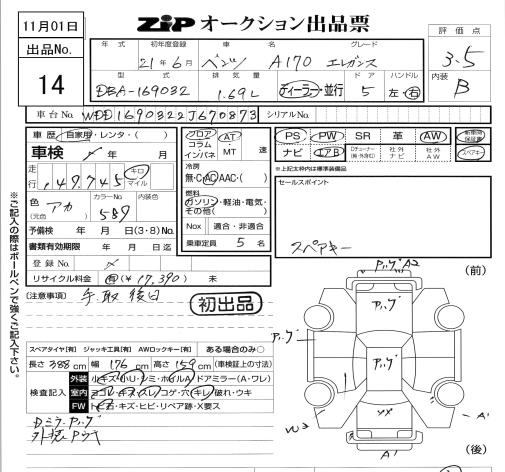 11月01日
ZIP オークション出品票
出品No.
14
年式 初年度登録 車名 グレード
21年6月 ベンツ A170 エレガンス
型式 排気量 ドア ハンドル
DBA-169032 1.69L ディーラー・並行 5 左・右
評価点
3.5
内装
B
車台No. WDD1690322J670873 シリアルNo.
車歴 自家用・レンタ・( )
車検 年 月
走行 49.745 キロ マイル
色 (元色) アカ カラーNo. 589 内装色
予備検 年 月 日(3・8)No.
書類有効期限 年 月 日迄
登録No.
リサイクル料金 有(¥17,390) 未
フロア コラム インパネ AT・MT 速
冷房 無・C・AC・AAC・( )
燃料
ガソリン・軽油・電気・その他( )
Nox 適合・非適合
乗車定員 5 名
PS PW SR 革 AW 新車時保証書
ナビ エアB 社外ナビ 社外AW スペアキー
※上記太枠内は標準装備品
セールスポイント
スペアキー
[注意事項] 手取後日
初出品
スペアタイヤ[有] ジャッキ工具[有] AWロックキー[有] ある場合のみ○
長さ 388cm 幅 176cm 高さ 159cm (車検証上の寸法)
検査記入
外装 小キズ・小U・シミ・ホイルA・ドアミラー(A・ワレ)
室内 ヨゴレ・キズ・スレ・コゲ・穴・キレ・破れ・ウキ
FW トビ石・キズ・ヒビ・リペア跡・X要ス
※ご記入の際はボールペンで強くご記入下さい。
(前)
A2
A1
(後)